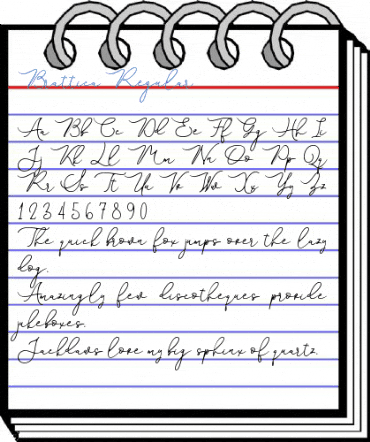 Brattica Regular
Aa Bb Cc Dd Ee Ff Gg Hh Ii
Jj Kk Ll Mm Nn Oo Pp Qq
Rr Ss Tt Uu Vv Ww Xx Yy Zz
1 2 3 4 5 6 7 8 9 0
The quick brown fox jumps over the lazy
dog.
Amazingly few discotheques provide
jukeboxes.
Jackdaws love my big sphinx of quartz.